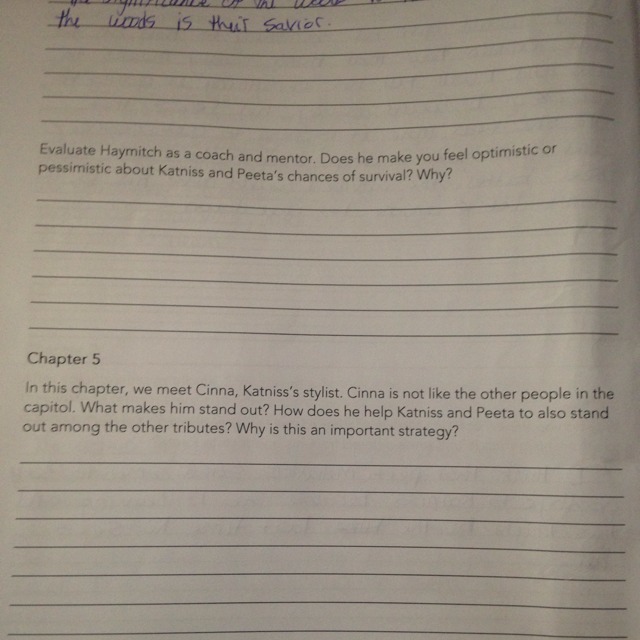 the significance of the
the woods is their savior.
Evaluate Haymitch as a coach and mentor. Does he make you feel optimistic or
pessimistic about Katniss and Peeta's chances of survival? Why?
Chapter 5
In this chapter, we meet Cinna, Katniss's stylist. Cinna is not like the other people in the
capitol. What makes him stand out? How does he help Katniss and Peeta to also stand
out among the other tributes? Why is this an important strategy?